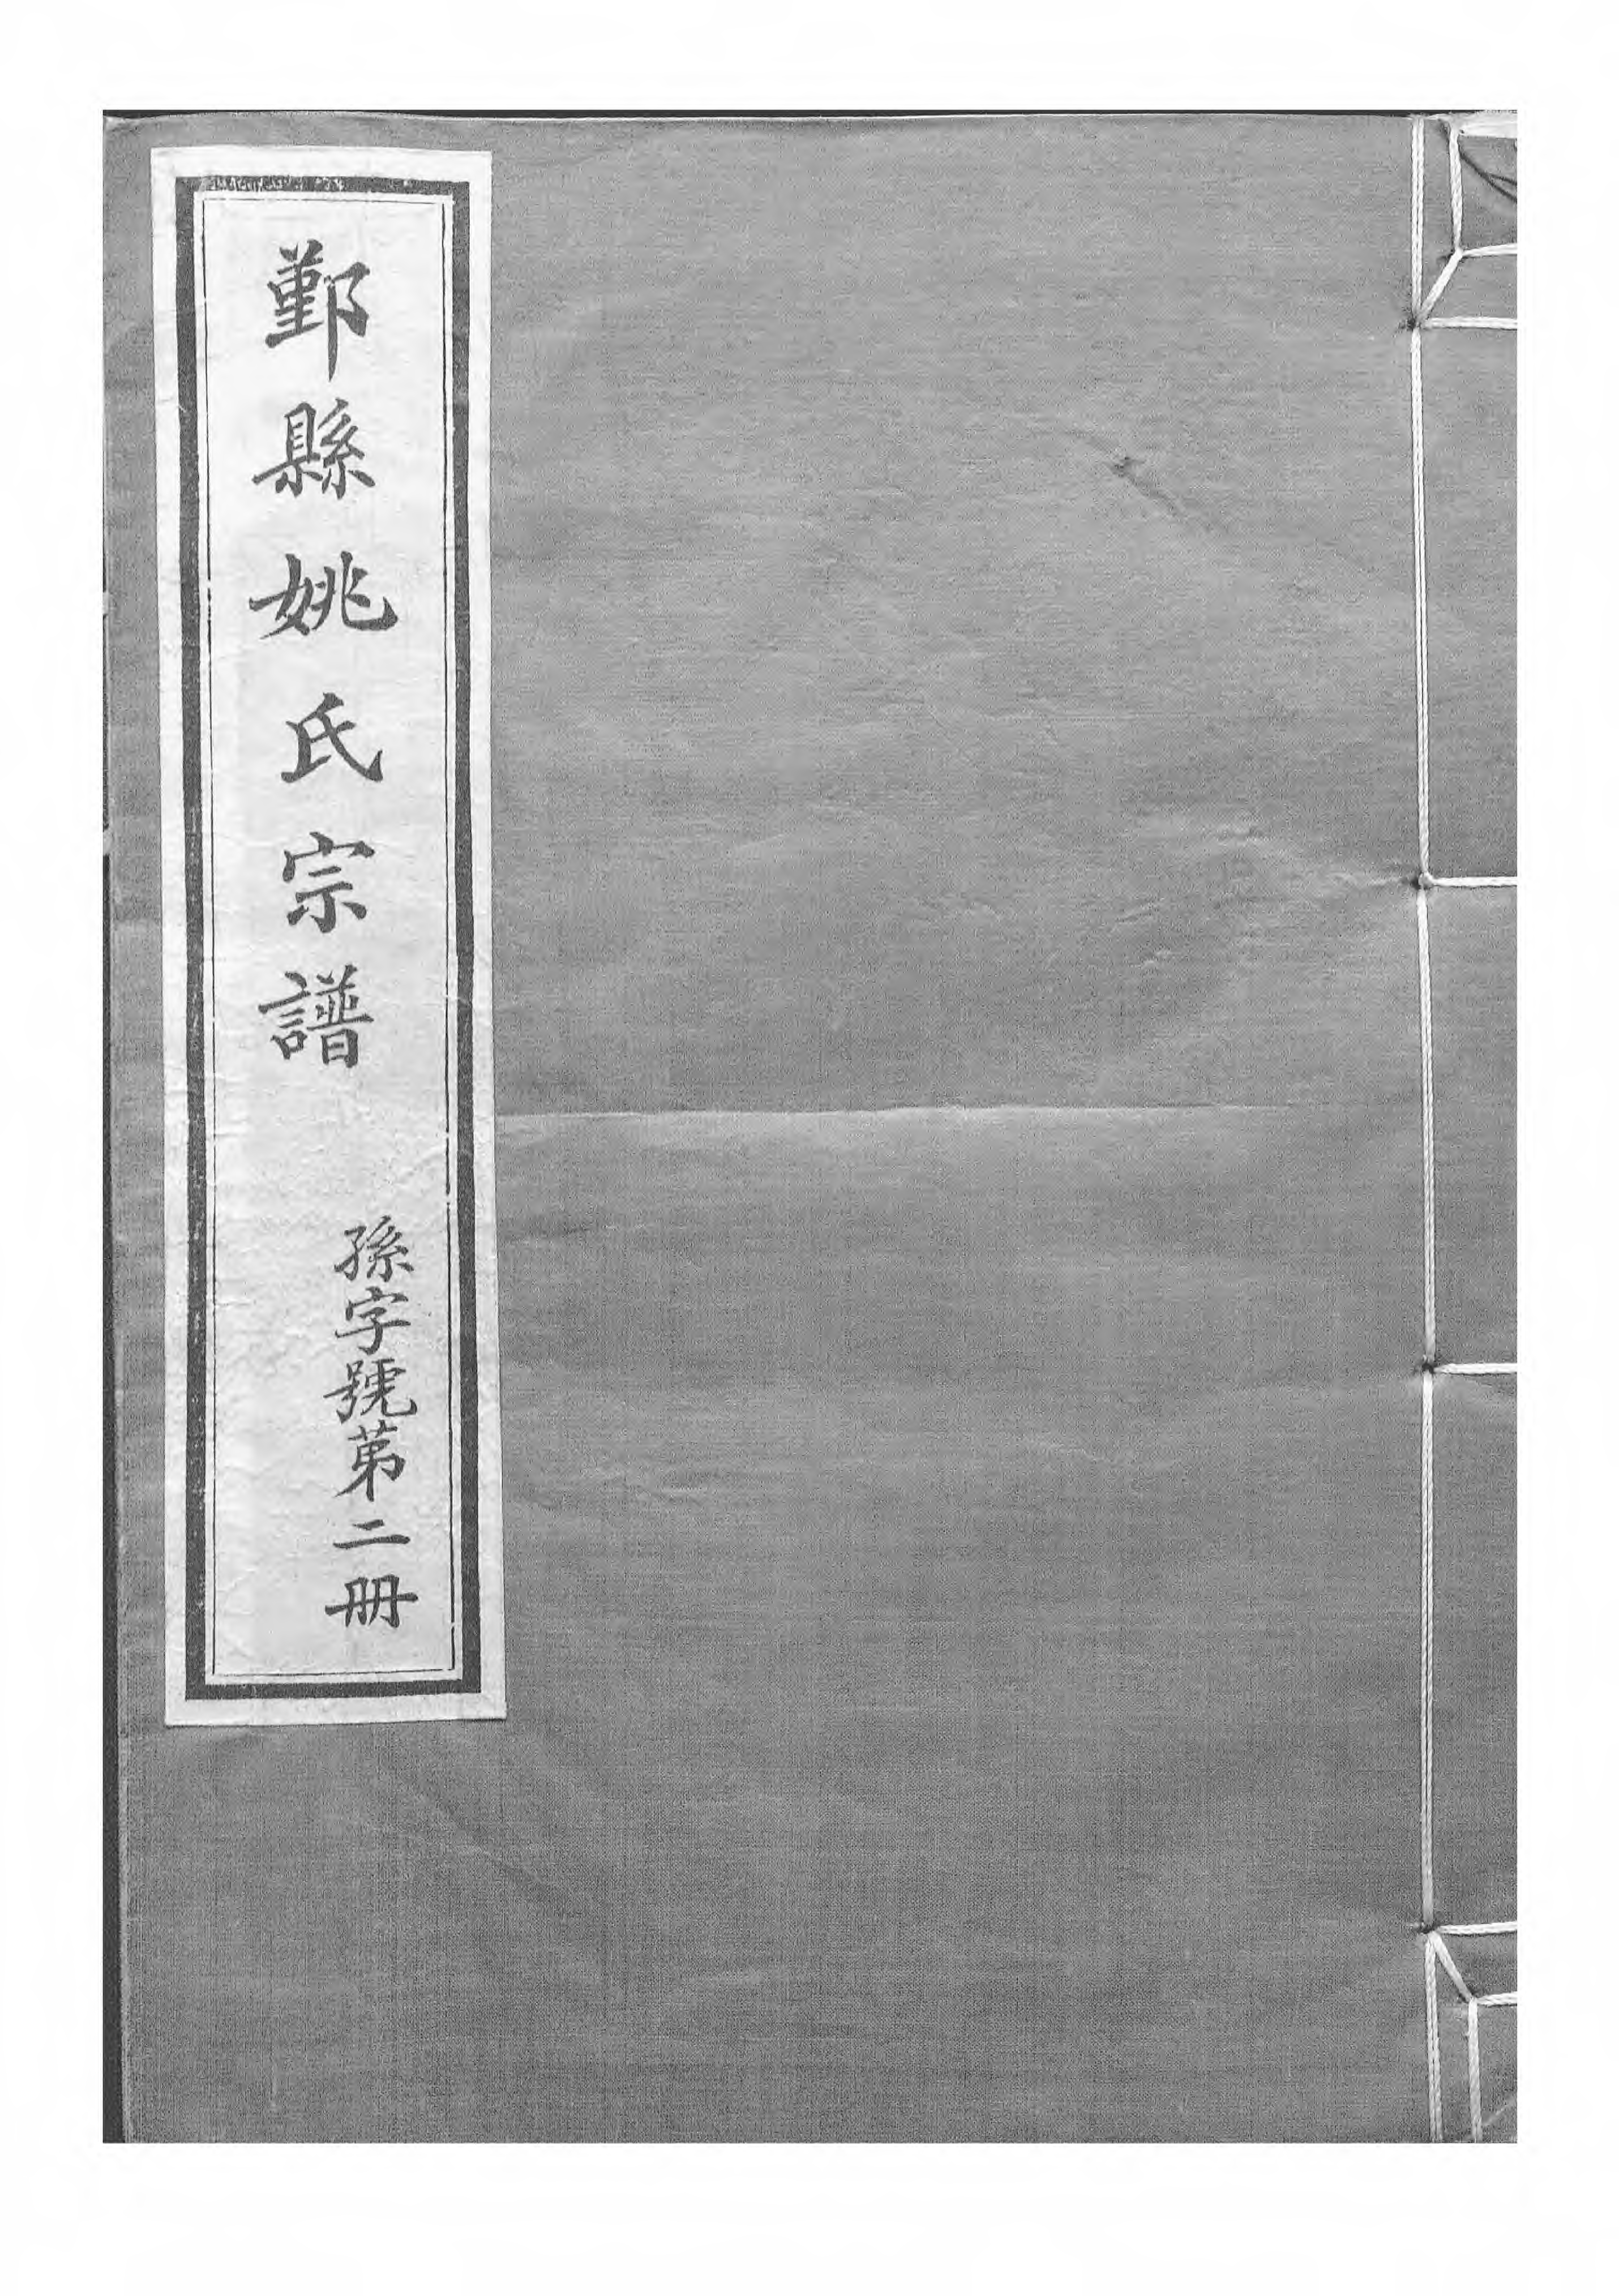 鄞縣姚氏宗譜
孫字號苐二冊